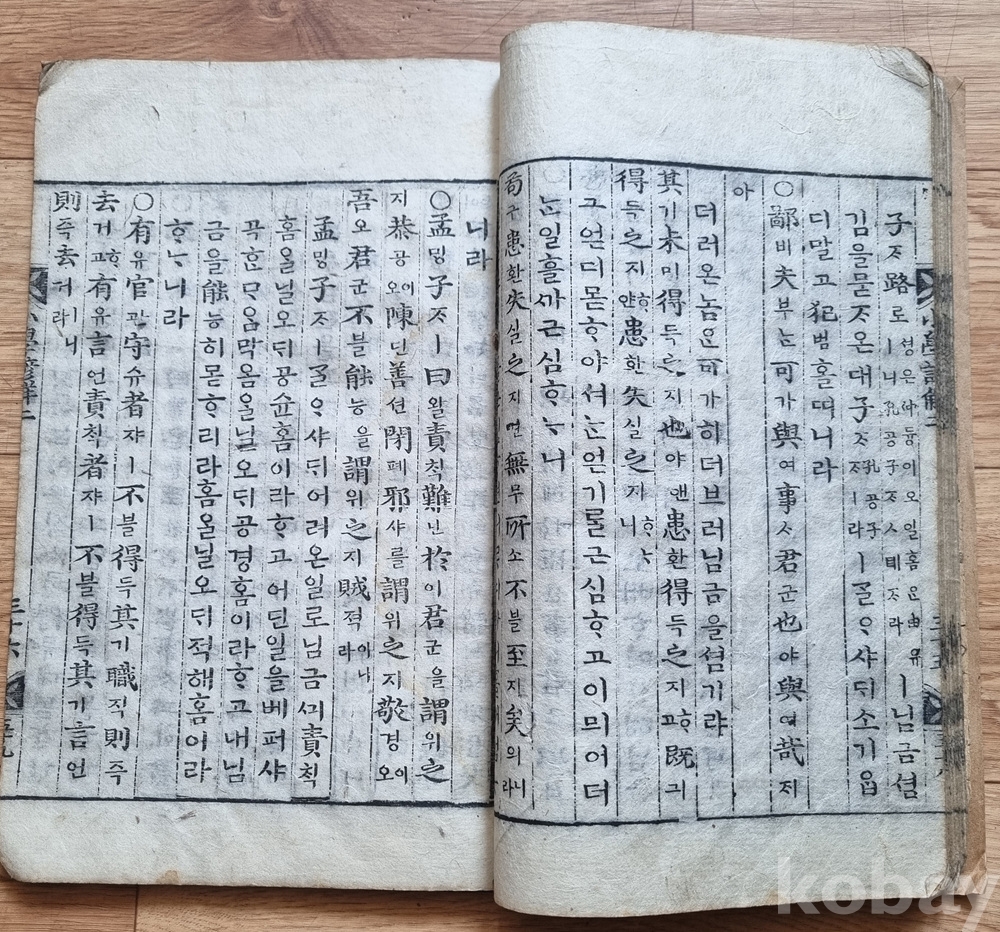 子ᄌᆞ路로셩은仲듕이오일홈은由유ㅣ니孔공子ᄌᆞㅅ뎨ᄌᆞ라ㅣ님금셤
김을묻ᄌᆞ온대子ᄌᆞ孔공子ᄌᆞㅣ라ㅣᄀᆞᆯᄋᆞ샤ᄃᆡ소기ᄋᆞᆸ
디말고犯범홀ᄯᅵ니라
○鄙비夫부ᄂᆞᆫ可가與여事ᄉᆞ君군也야與여哉ᄌᆡ
아
더러온놈은可가히더브러님금을셤기랴
其기未미得득之지也야앤患환得득之지ᄒᆞ고既긔
得득之지ᄒᆞ얀患환失실之지ᄒᆞᄂᆞ니
그얻디몯ᄒᆞ야셔ᄂᆞᆫ얻기ᄅᆞᆯ근심ᄒᆞ고이믜어더
ᄂᆞᆫ일흘가근심ᄒᆞᄂᆞ니
苟구患환失실之지면無무所소不블至지矣의니라
니라
○孟ᄆᆡᆼ子ᄌᆞㅣ曰왈責ᄎᆡᆨ難난於어君군을謂위之
지恭공이오陳딘善션閉폐邪샤를謂위之지敬경이오
吾오君군不블能능을謂위之지賊적이니라
孟ᄆᆡᆼ子ᄌᆞㅣᄀᆞᆯᄋᆞ샤ᄃᆡ어려온일로님금ᄭᅴ責ᄎᆡᆨ
홈올닐오ᄃᆡ공슌홈이라ᄒᆞ고어딘일을베퍼샤
곡ᄒᆞᆫᄆᆞᄋᆞᆷ막음올닐오ᄃᆡ공경홈이라ᄒᆞ고내님
금을能능히몯ᄒᆞ리라홈올닐오ᄃᆡ적해홈이라
ᄒᆞᄂᆞ니라
○有유官관守슈者쟈ㅣ不블得득其기職직則즉
去거ᄒᆞ고有유言언責ᄎᆡᆨ者쟈ㅣ不블得득其기言언
則즉去거ㅣ니라
小學諺解二
三十六
kobay